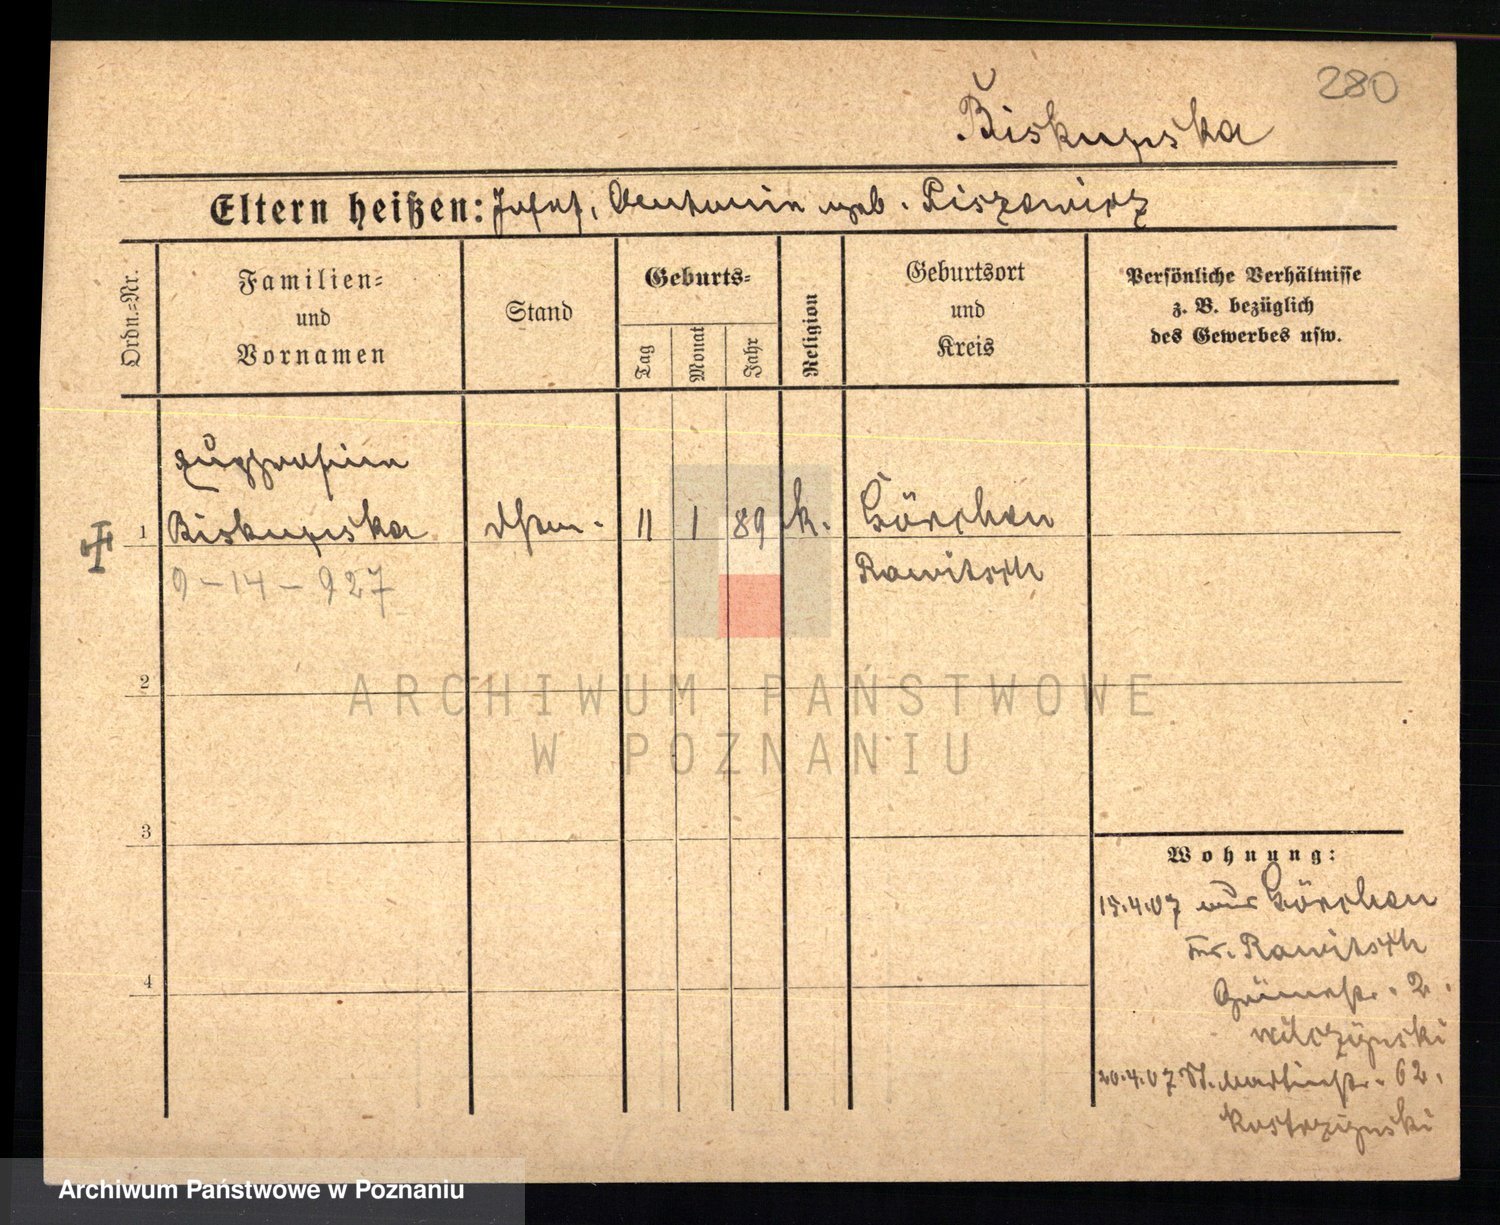 280
Biskupska
Eltern heißen: Josef, Antonie geb. Piszewicz
Ordn.-Nr.
Familien-
und
Vornamen
Stand
Geburts-
Tag
Monat
Jahr
Religion
Geburtsort
und
Kreis
Persönliche Verhältnisse
z. B. bezüglich
des Gewerbes usw.
1
Biskupska
11 1 89 k.
Görchen
Rawitsch
9-14-927
2
3
4
ARCHIWUM PAŃSTWOWE
W POZNANIU
Wohnung:
15.4.07 aus Görchen
Kr. Rawitsch
2.
Wilczynski
20.4.07 St. Martinstr. 62.
Kostrzynski
Archiwum Państwowe w Poznaniu